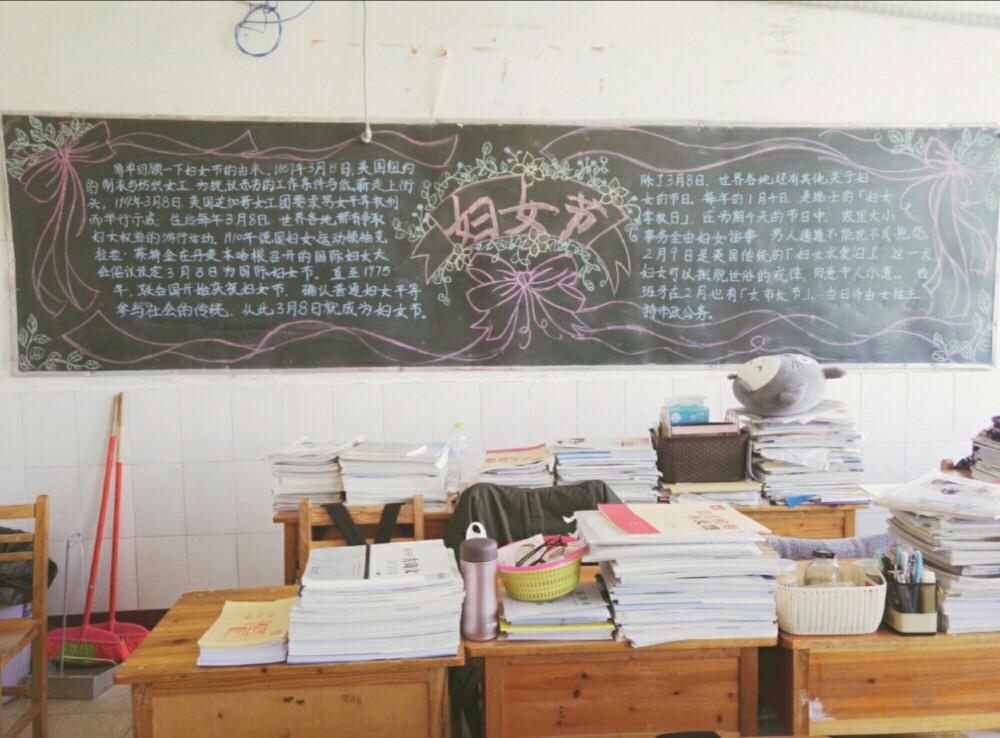 简单回顾一下妇女节的由来、1857年3月8日,美国纽约
的制衣与纺织女工,为抗议恶劣的工作条件与低薪走上街
头,1908年3月8日,美国芝加哥女工团要求男女平等权利
而举行示威,往后每年3月8日,世界各地,都有争取
妇女权益的游行活动,1910年德国妇女运动领袖克
拉拉·蔡特金在丹麦本哈根召开的国际妇女大
会倡议设定3月8日为国际妇女节。直至1975
年,联合国开始庆祝妇女节,确认普通妇女平等
参与社会的传统,从此3月8日就成为妇女节。
妇女节
除了3月8日,世界各地还有其他关于妇
女的节日,每年的1月4日,是瑞士的「妇女
掌权日」,在为期4天的节日中,家里大小
事务全由妇女作主,男人通通不能说不或抱怨
2月9日是英国传统的「妇女求爱日」,这一天
妇女可以摆脱世俗的戒律,向意中人示爱。西
班牙在2月也有「女市长节」,当日将由女性主
持市政公务。
古诗文